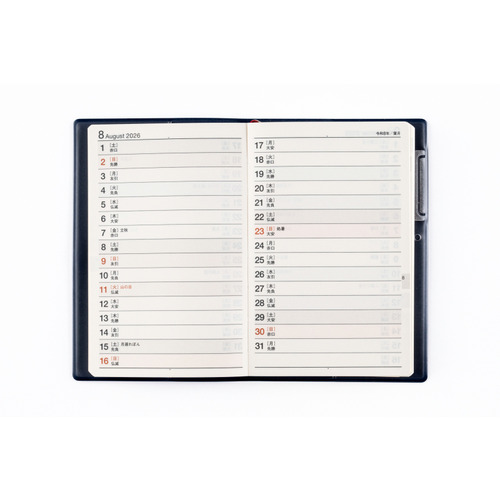 8 August 2026
1 [土]
赤口
2 [日]
先勝
3 [月]
友引
4 [火]
先負
5 [水]
仏滅
6 [木]
大安
7 [金] 立秋
赤口
8 [土]
先勝
9 [日]
友引
10 [月]
先負
11 [火] 山の日
仏滅
12 [水]
大安
13 [木]
先勝
14 [金]
友引
15 [土] 月遅れぼん
先負
16 [日]
仏滅
令和8年/葉月
17 [月]
大安
18 [火]
赤口
19 [水]
先勝
20 [木]
友引
21 [金]
先負
22 [土]
仏滅
23 [日] 処暑
大安
24 [月]
赤口
25 [火]
先勝
26 [水]
友引
27 [木]
先負
28 [金]
仏滅
29 [土]
大安
30 [日]
赤口
31 [月]
先勝